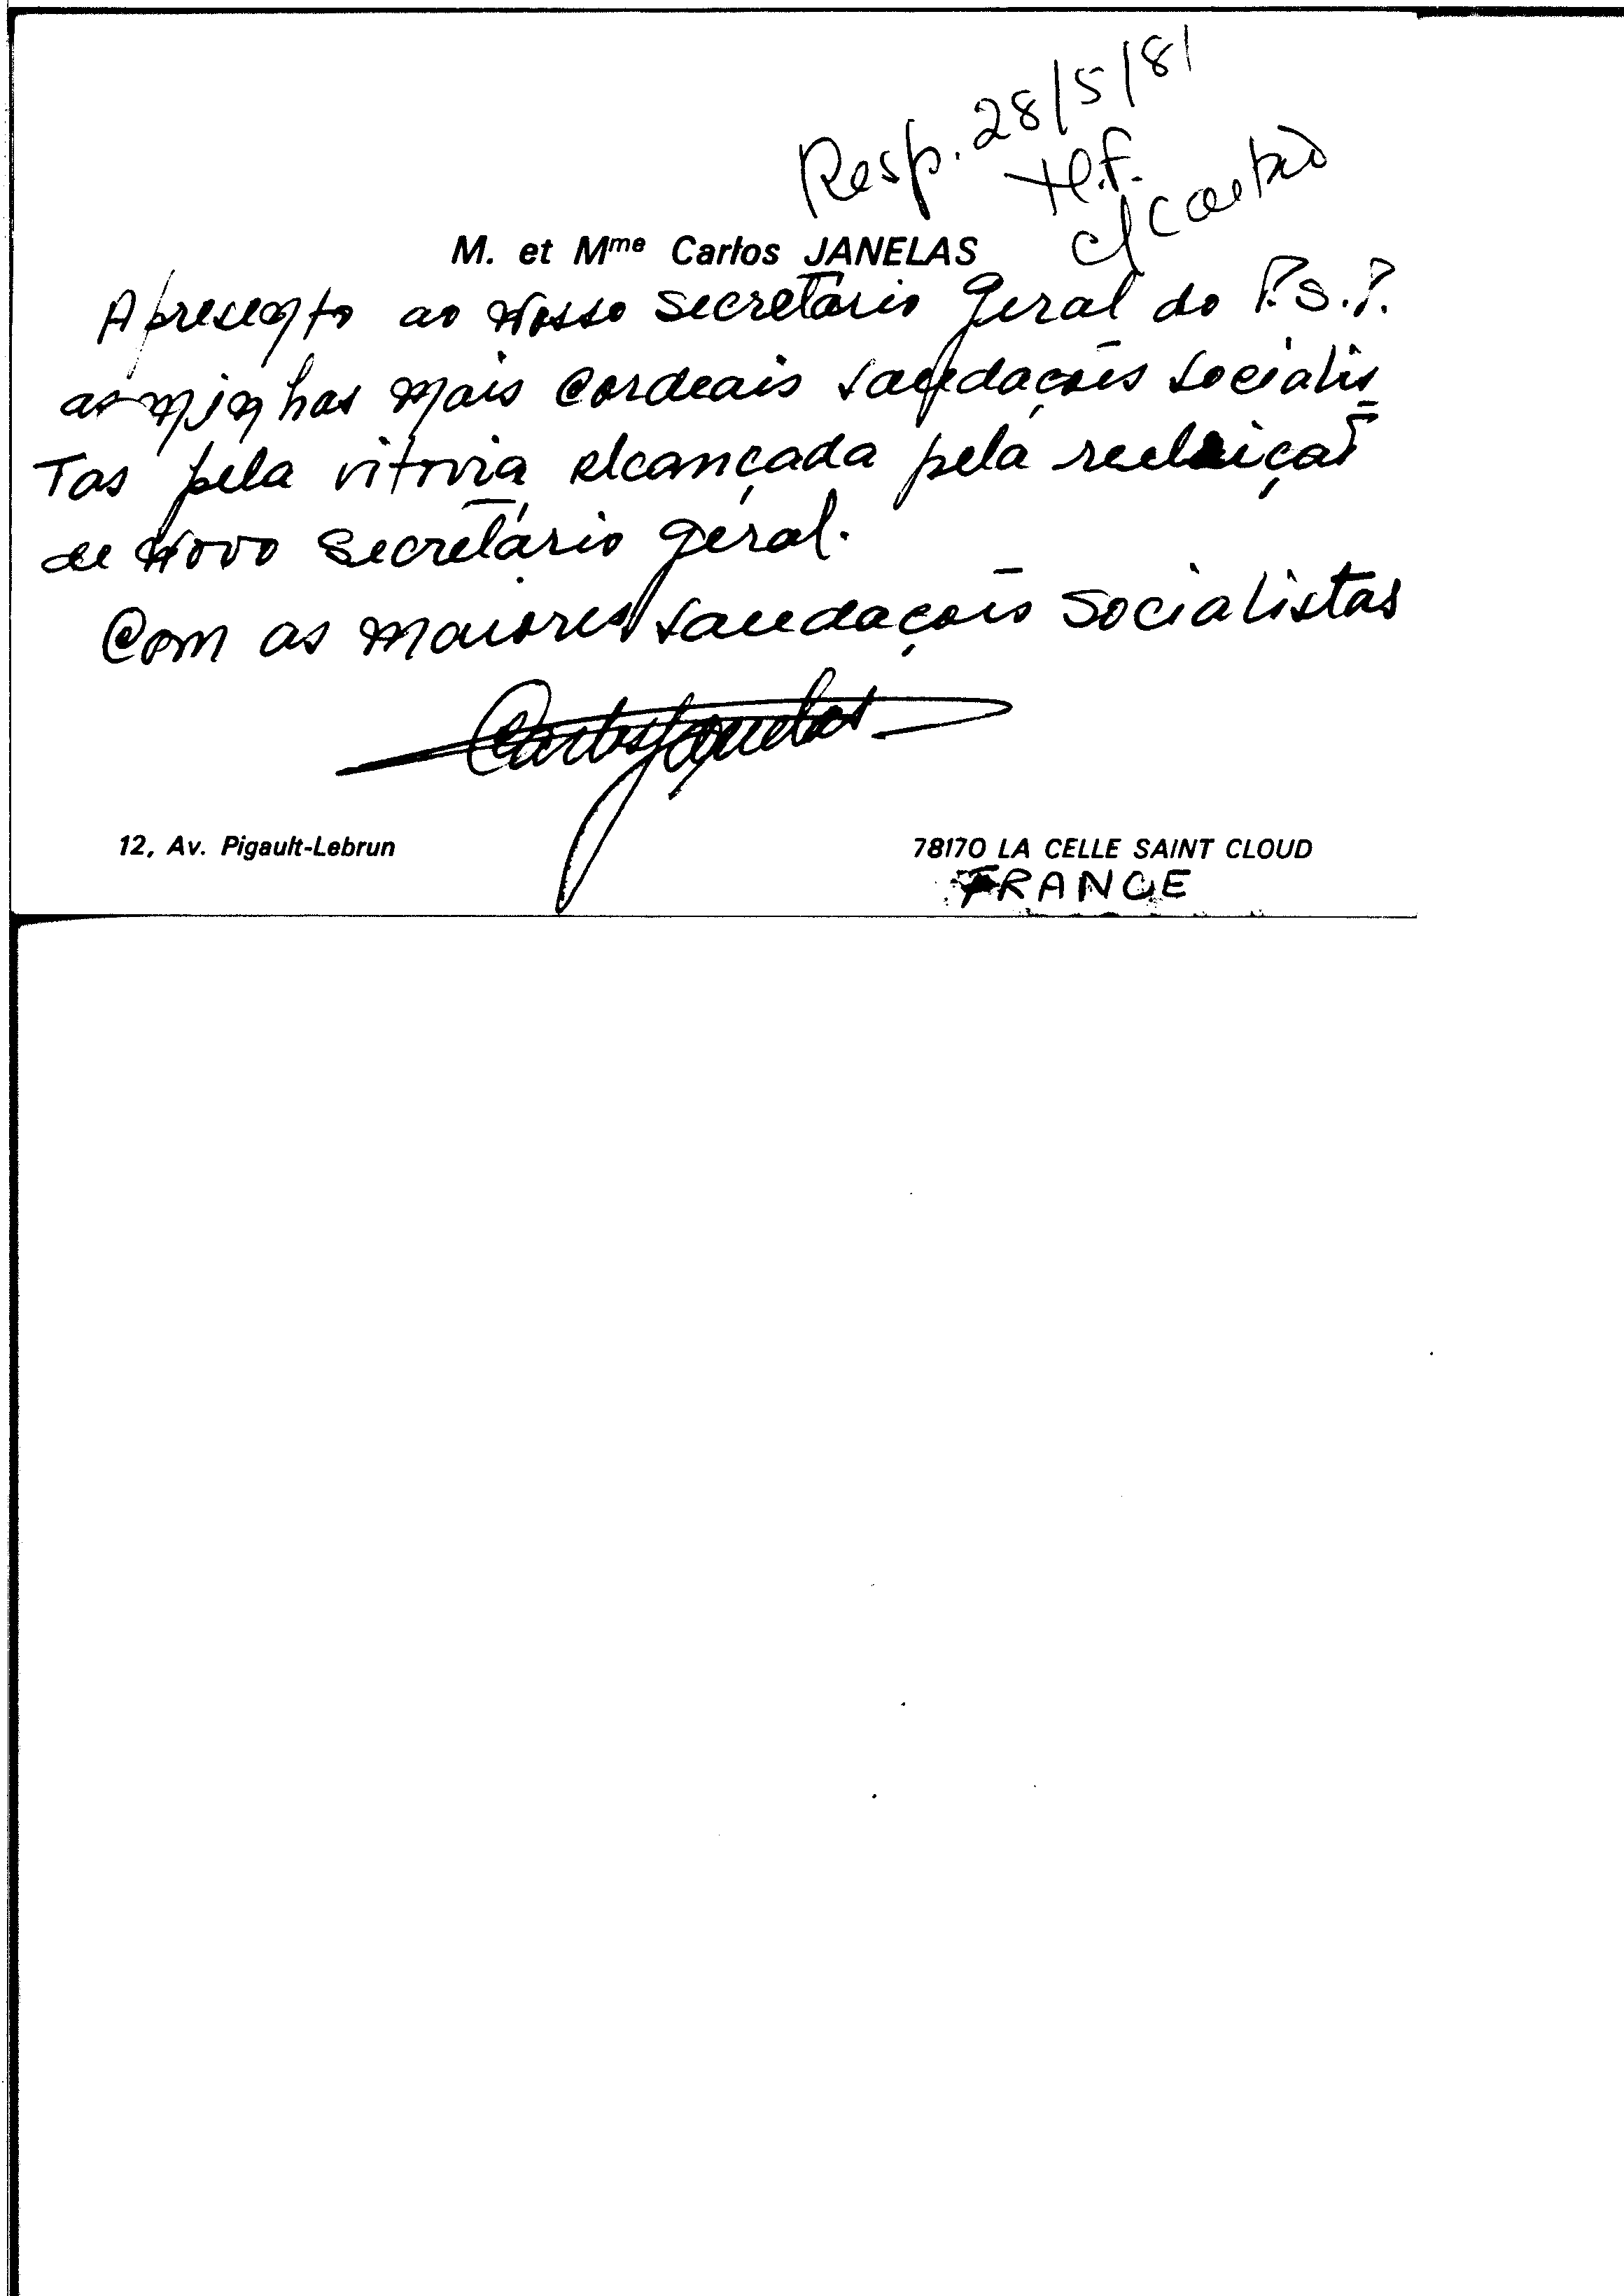 Resp. 28/5/81
H.F.
c/ cartão
M. et Mme Carlos JANELAS
Apresento ao Nosso Secretário Geral do P.S.P.
as minhas mais Cordeais saudações socialis
Tas pela vitoria alcançada pela reeleição
de Novo Secretário geral.
Com as maiores saudações Socialistas
Carlos Janelas
12, Av. Pigault-Lebrun
78170 LA CELLE SAINT CLOUD
FRANCE